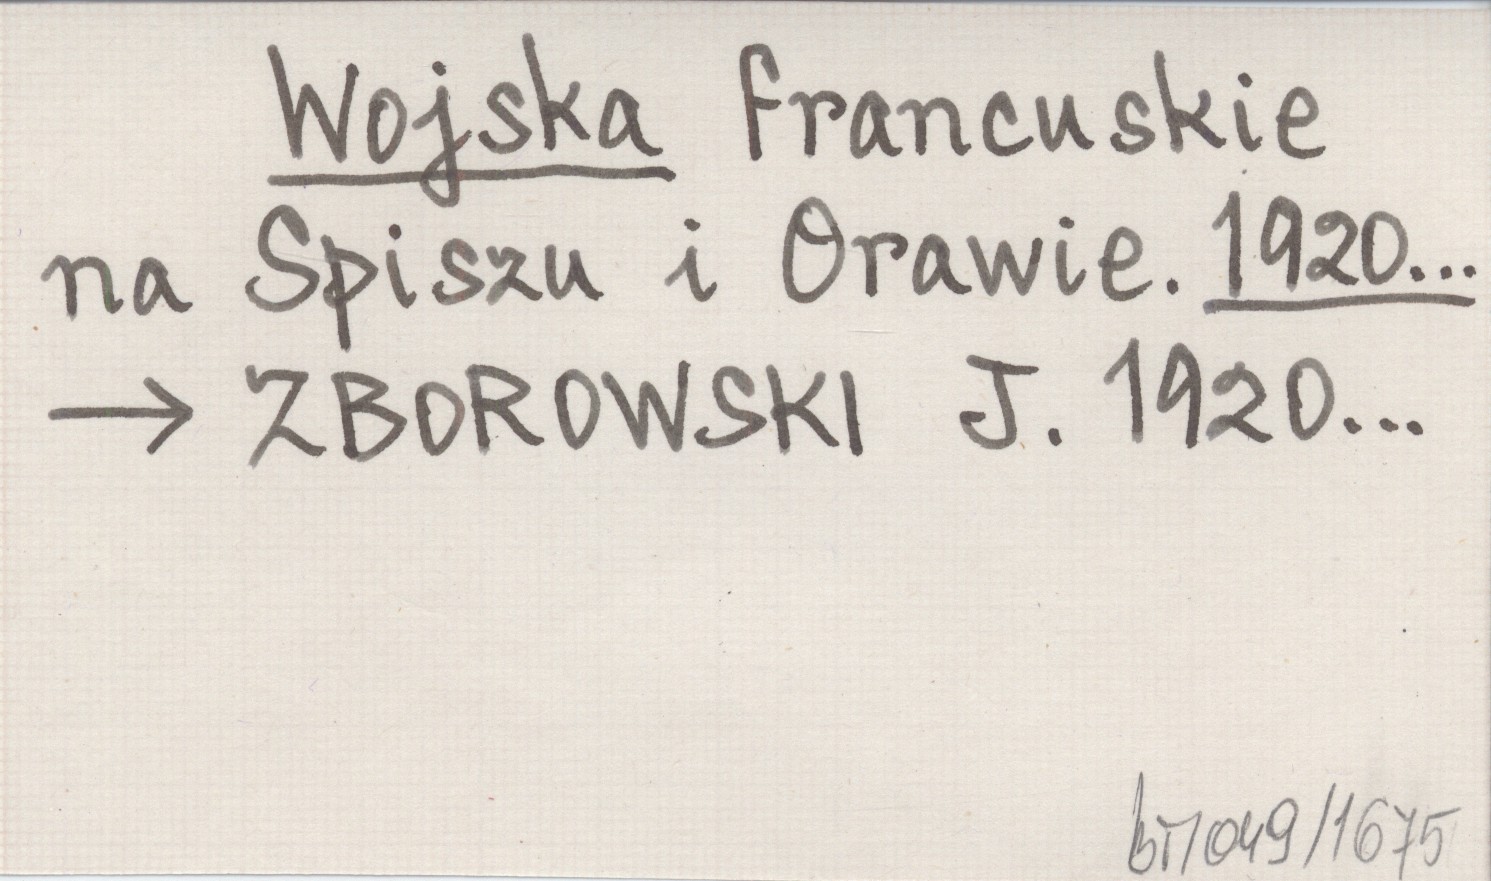 Wojska francuskie
na Spiszu i Orawie. 1920...
→ ZBOROWSKI J. 1920...
bT/049/1675